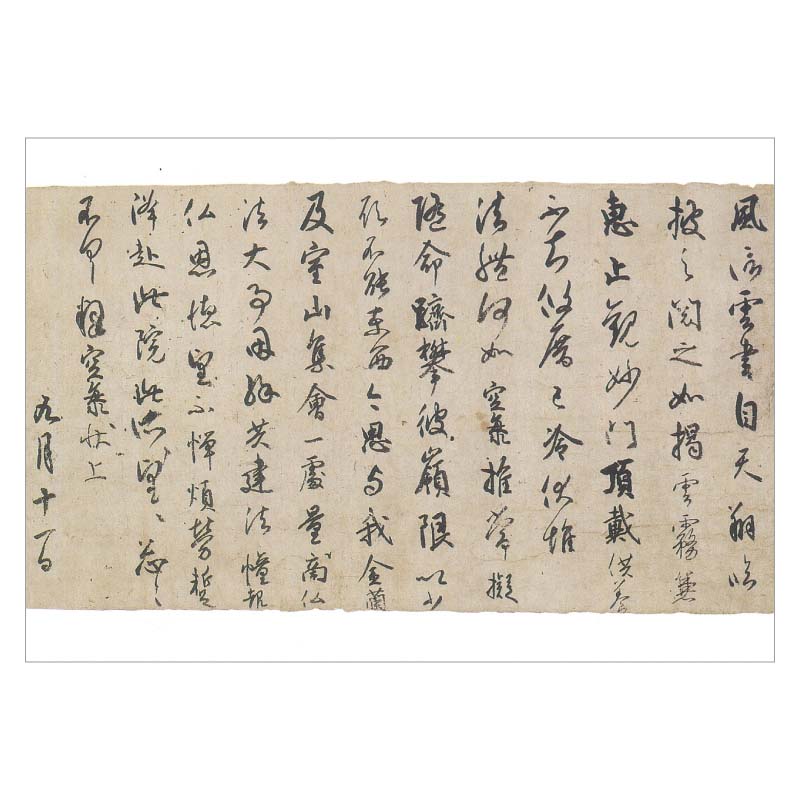 風信雲書自天翔臨
披之閲之如揭雲霧兼
惠止観妙門頂戴供養
不知攸厝已冷伏惟
法體何如空海推常擬
隨命躋攀彼嶺限以少
願不能東西今思与我金蘭
及室山集會一處量商仏
法大事因縁共建法幢報
仏恩徳望不憚煩勞蹔
降赴此院此所望々々忩々
不具釋空海状上
九月十一日